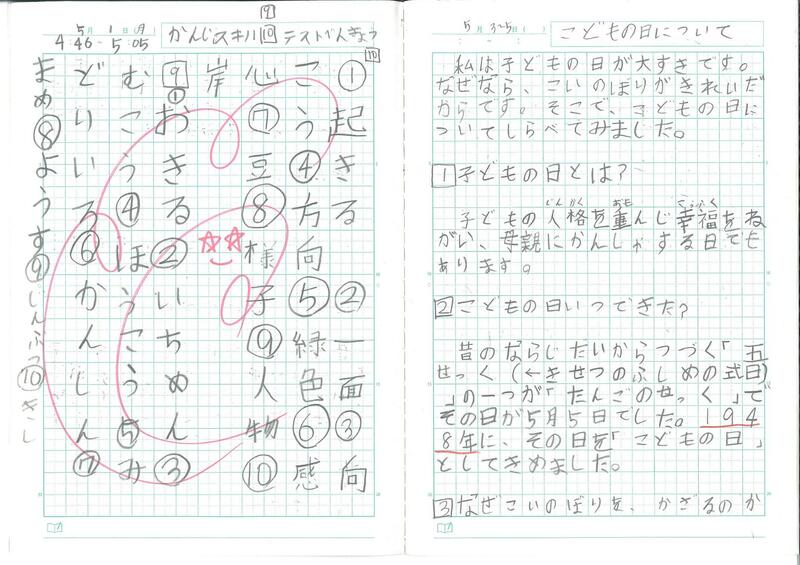 5月1日(月)
4:46-5:05
9
かんじスキル10テストべんきょう
10
①起きる②一面③向
こう④方向⑤緑色⑥感
心⑦豆⑧様子⑨人物⑩
岸
9①おきる②いちめん③
むこう④ほうこう⑤み
どりいろ⑥かんしん⑦
まめ⑧ようす⑨じんぶつ⑩きし
5月3~5日( )
こどもの日について
私は子どもの日が大すきです。
なぜなら、こいのぼりがきれいだ
からです。そこで、こどもの日に
ついてしらべてみました。
1子どもの日とは?
じんかく おも こうふく
子どもの人格を重んじ幸福をね
がい、母親にかんしゃする日でも
あります。
2こどもの日いつできた?
昔のならじだいからつづく「五
せっく(←きせつのふしめの式日)
」の一つが「たんごのせっく」で
その日が5月5日でした。194
8年に、その日を「こどもの日」
としてきめました。
3なぜこいのぼりを、かざるのか